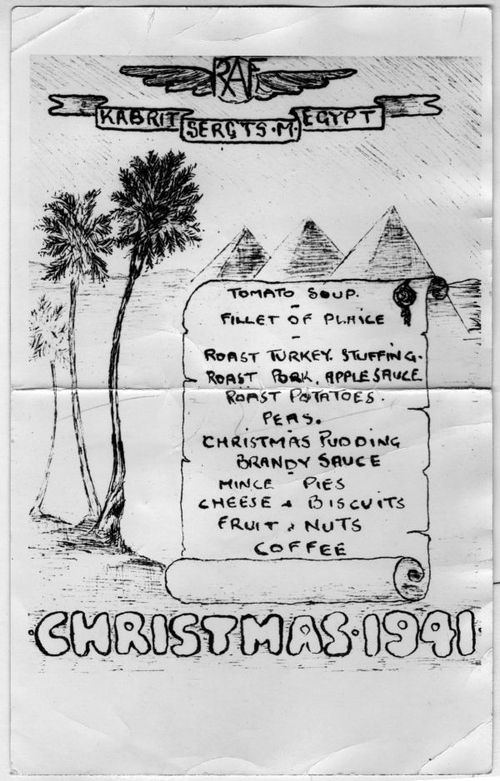 RAF
KABRIT SERGTS·M· EGYPT
TOMATO SOUP.
FILLET OF PLAICE
ROAST TURKEY. STUFFING.
ROAST PORK. APPLE SAUCE
ROAST POTATOES.
PEAS.
CHRISTMAS PUDDING
BRANDY SAUCE
MINCE PIES
CHEESE & BISCUITS
FRUIT & NUTS
COFFEE
·CHRISTMAS·1941·